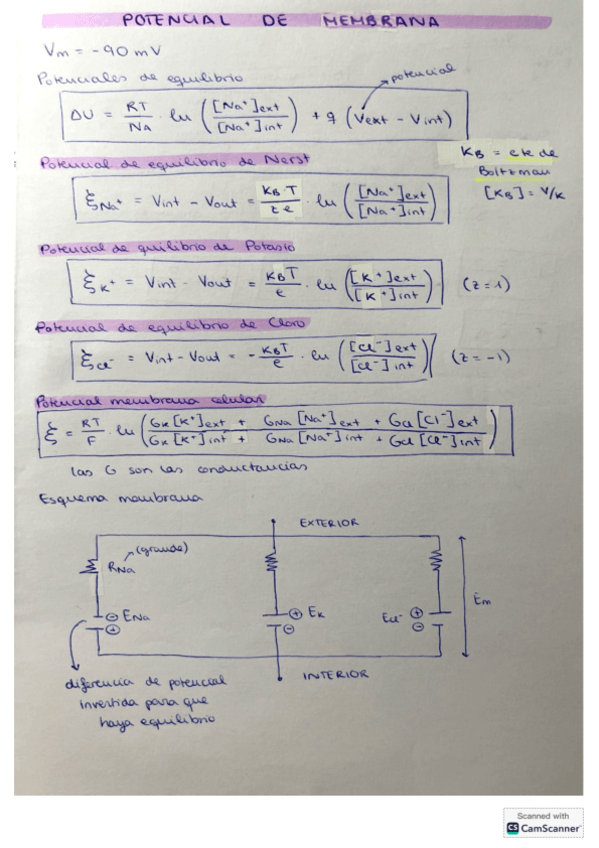 POTENCIAL DE MEMBRANA
Vm = -90 mV
Potenciales de equilibrio
ΔU = RT/NA · ln ([Na⁺]ext/[Na⁺]int) + q (Vext - Vint)
potencial
KB = cte de
Boltzman
[KB] = V/K
Potencial de equilibrio de Nerst
ξNa⁺ = Vint - Vout = KB·T/z e · ln ([Na⁺]ext/[Na⁺]int)
Potencial de quilibrio de Potasio
ξK⁺ = Vint - Vout = KBT/e · ln ([K⁺]ext/[K⁺]int) (z=1)
Potencial de equilibrio de Cloro
ξCl⁻ = Vint - Vout = - KBT/e · ln ([Cl⁻]ext/[Cl⁻]int) (z=-1)
Potencial membrana celular
ξ = RT/F · ln (GK[K⁺]ext + GNa[Na⁺]ext + GCl[Cl⁻]ext / GK[K⁺]int + GNa[Na⁺]int + GCl[Cl⁻]int)
las G son las conductancias
Esquema membrana
EXTERIOR
(grande)
RNa
⊖ ENa
⊕
⊕ EK
⊖
ECl⁻ ⊕
⊖
Em
INTERIOR
diferencia de potencial
invertida para que
haya equilibrio
Scanned with
CS CamScanner